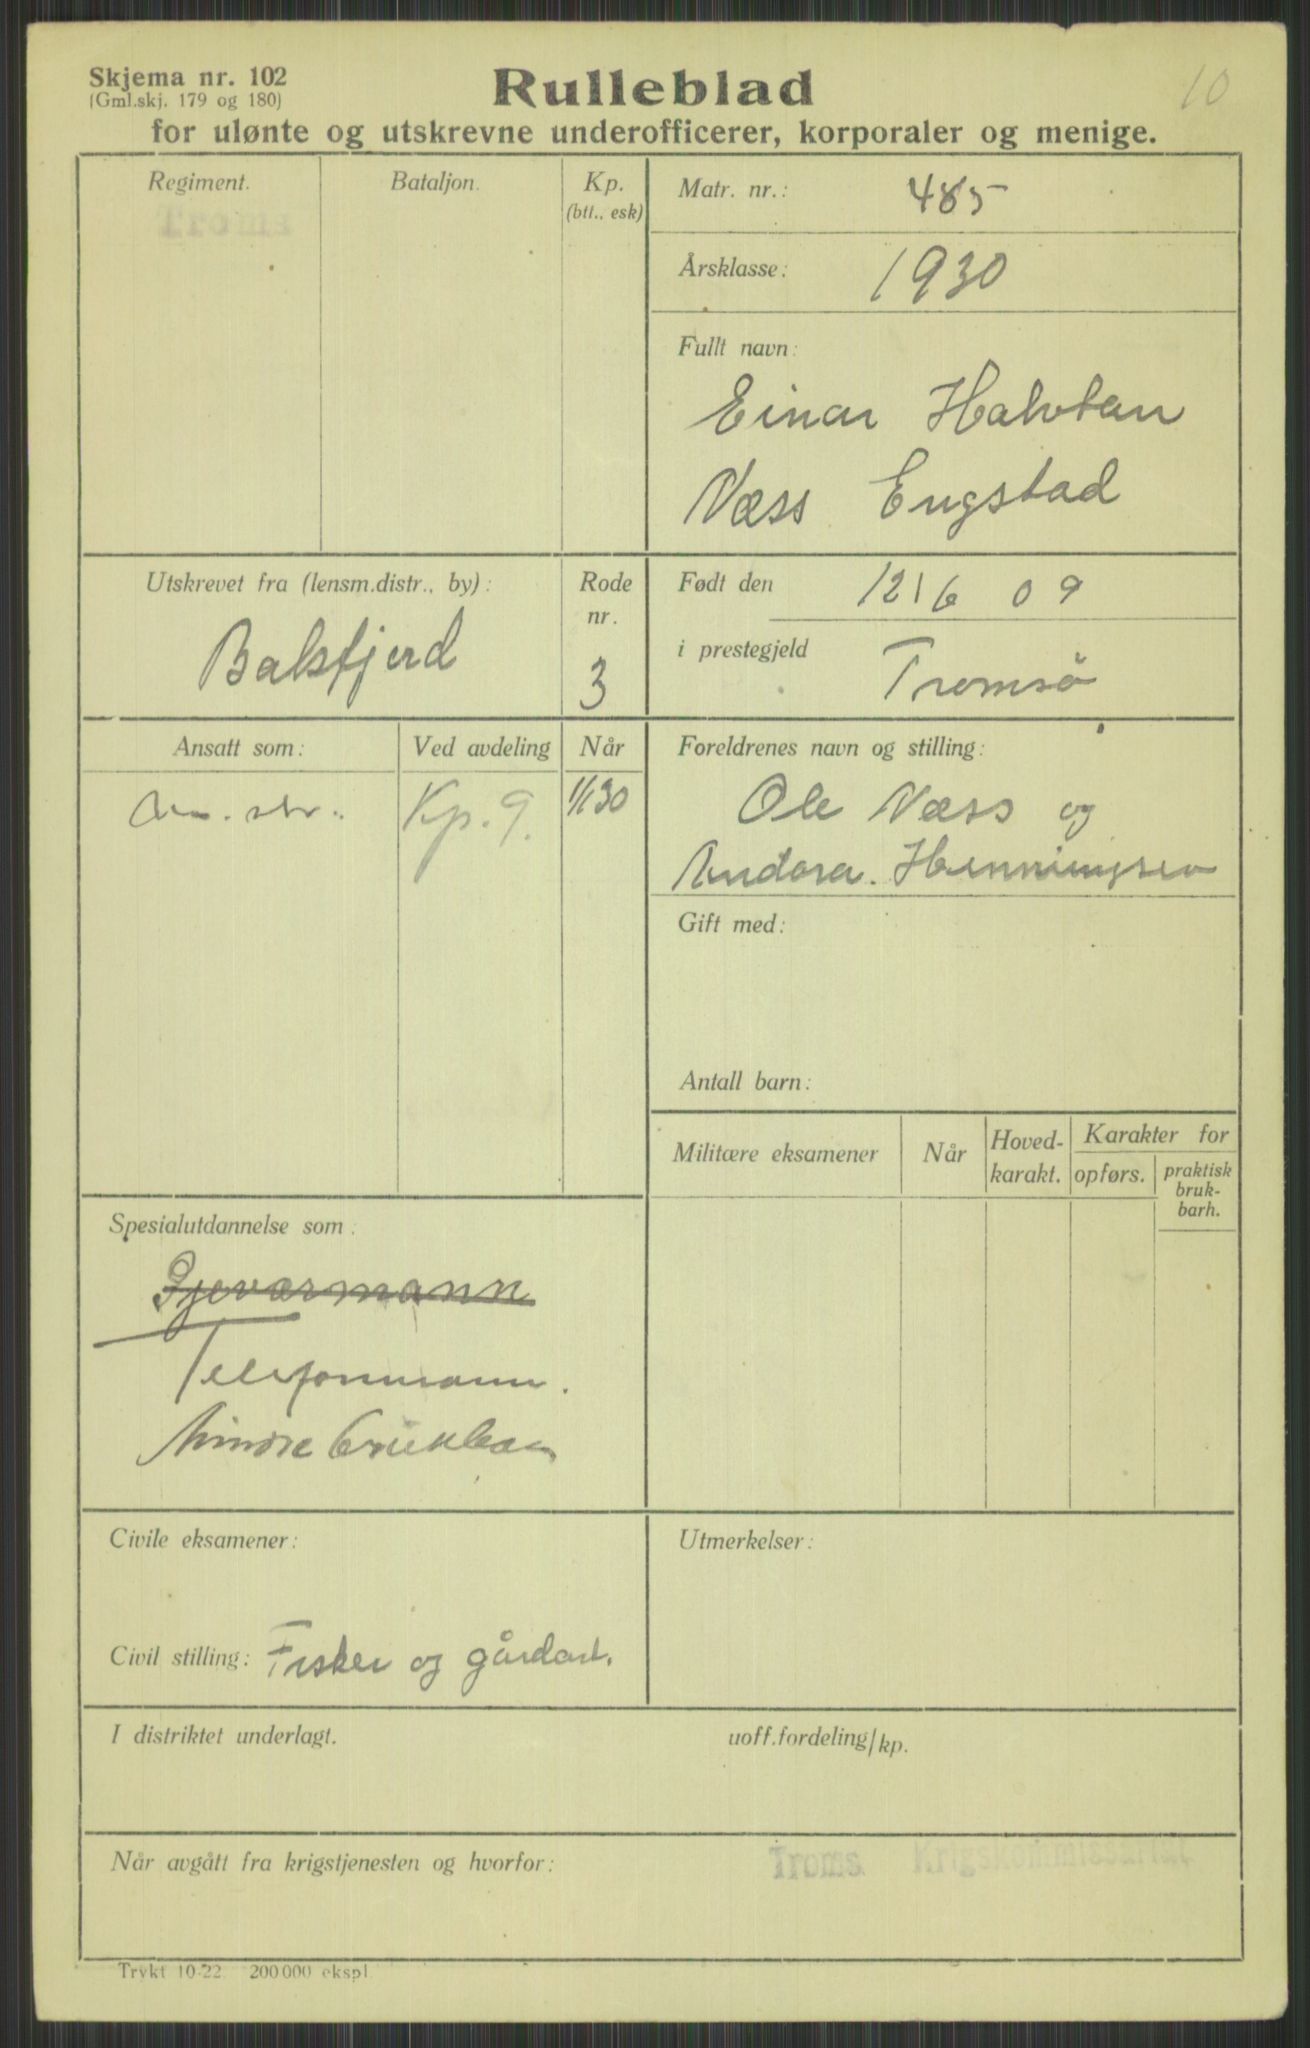 Skjema nr. 102
(Gml.skj. 179 og 180)
Rulleblad
10
for ulønte og utskrevne underofficerer, korporaler og menige.
Regiment.
Bataljon.
Kp.
(btt., esk)
Troms
Matr. nr.: 485
Årsklasse: 1930
Fullt navn:
Einar Halvtan
Væss Engstad
Utskrevet fra (lensm.distr., by):
Balsfjord
Rode
nr.
3
Født den 12/6 09
i prestegjeld Tromsö
Ansatt som:
Ved avdeling
Når
Kp. 9.
1/1 30
Foreldrenes navn og stilling:
Ole Væss og
Andora. Henningsen
Gift med:
Antall barn:
Militære eksamener
Når
Hoved-
karakt.
Karakter for
opførs.
praktisk
bruk-
barh.
Spesialutdannelse som:
Gjeværmann
Telefonmann.
Mindre
Civile eksamener:
Civil stilling: Fisker og gårdarb.
Utmerkelser:
I distriktet underlagt.
uoff.fordeling/kp.
Når avgått fra krigstjenesten og hvorfor:
Troms Krigskommissariat
Trykt 10-22. 200 000 ekspl.